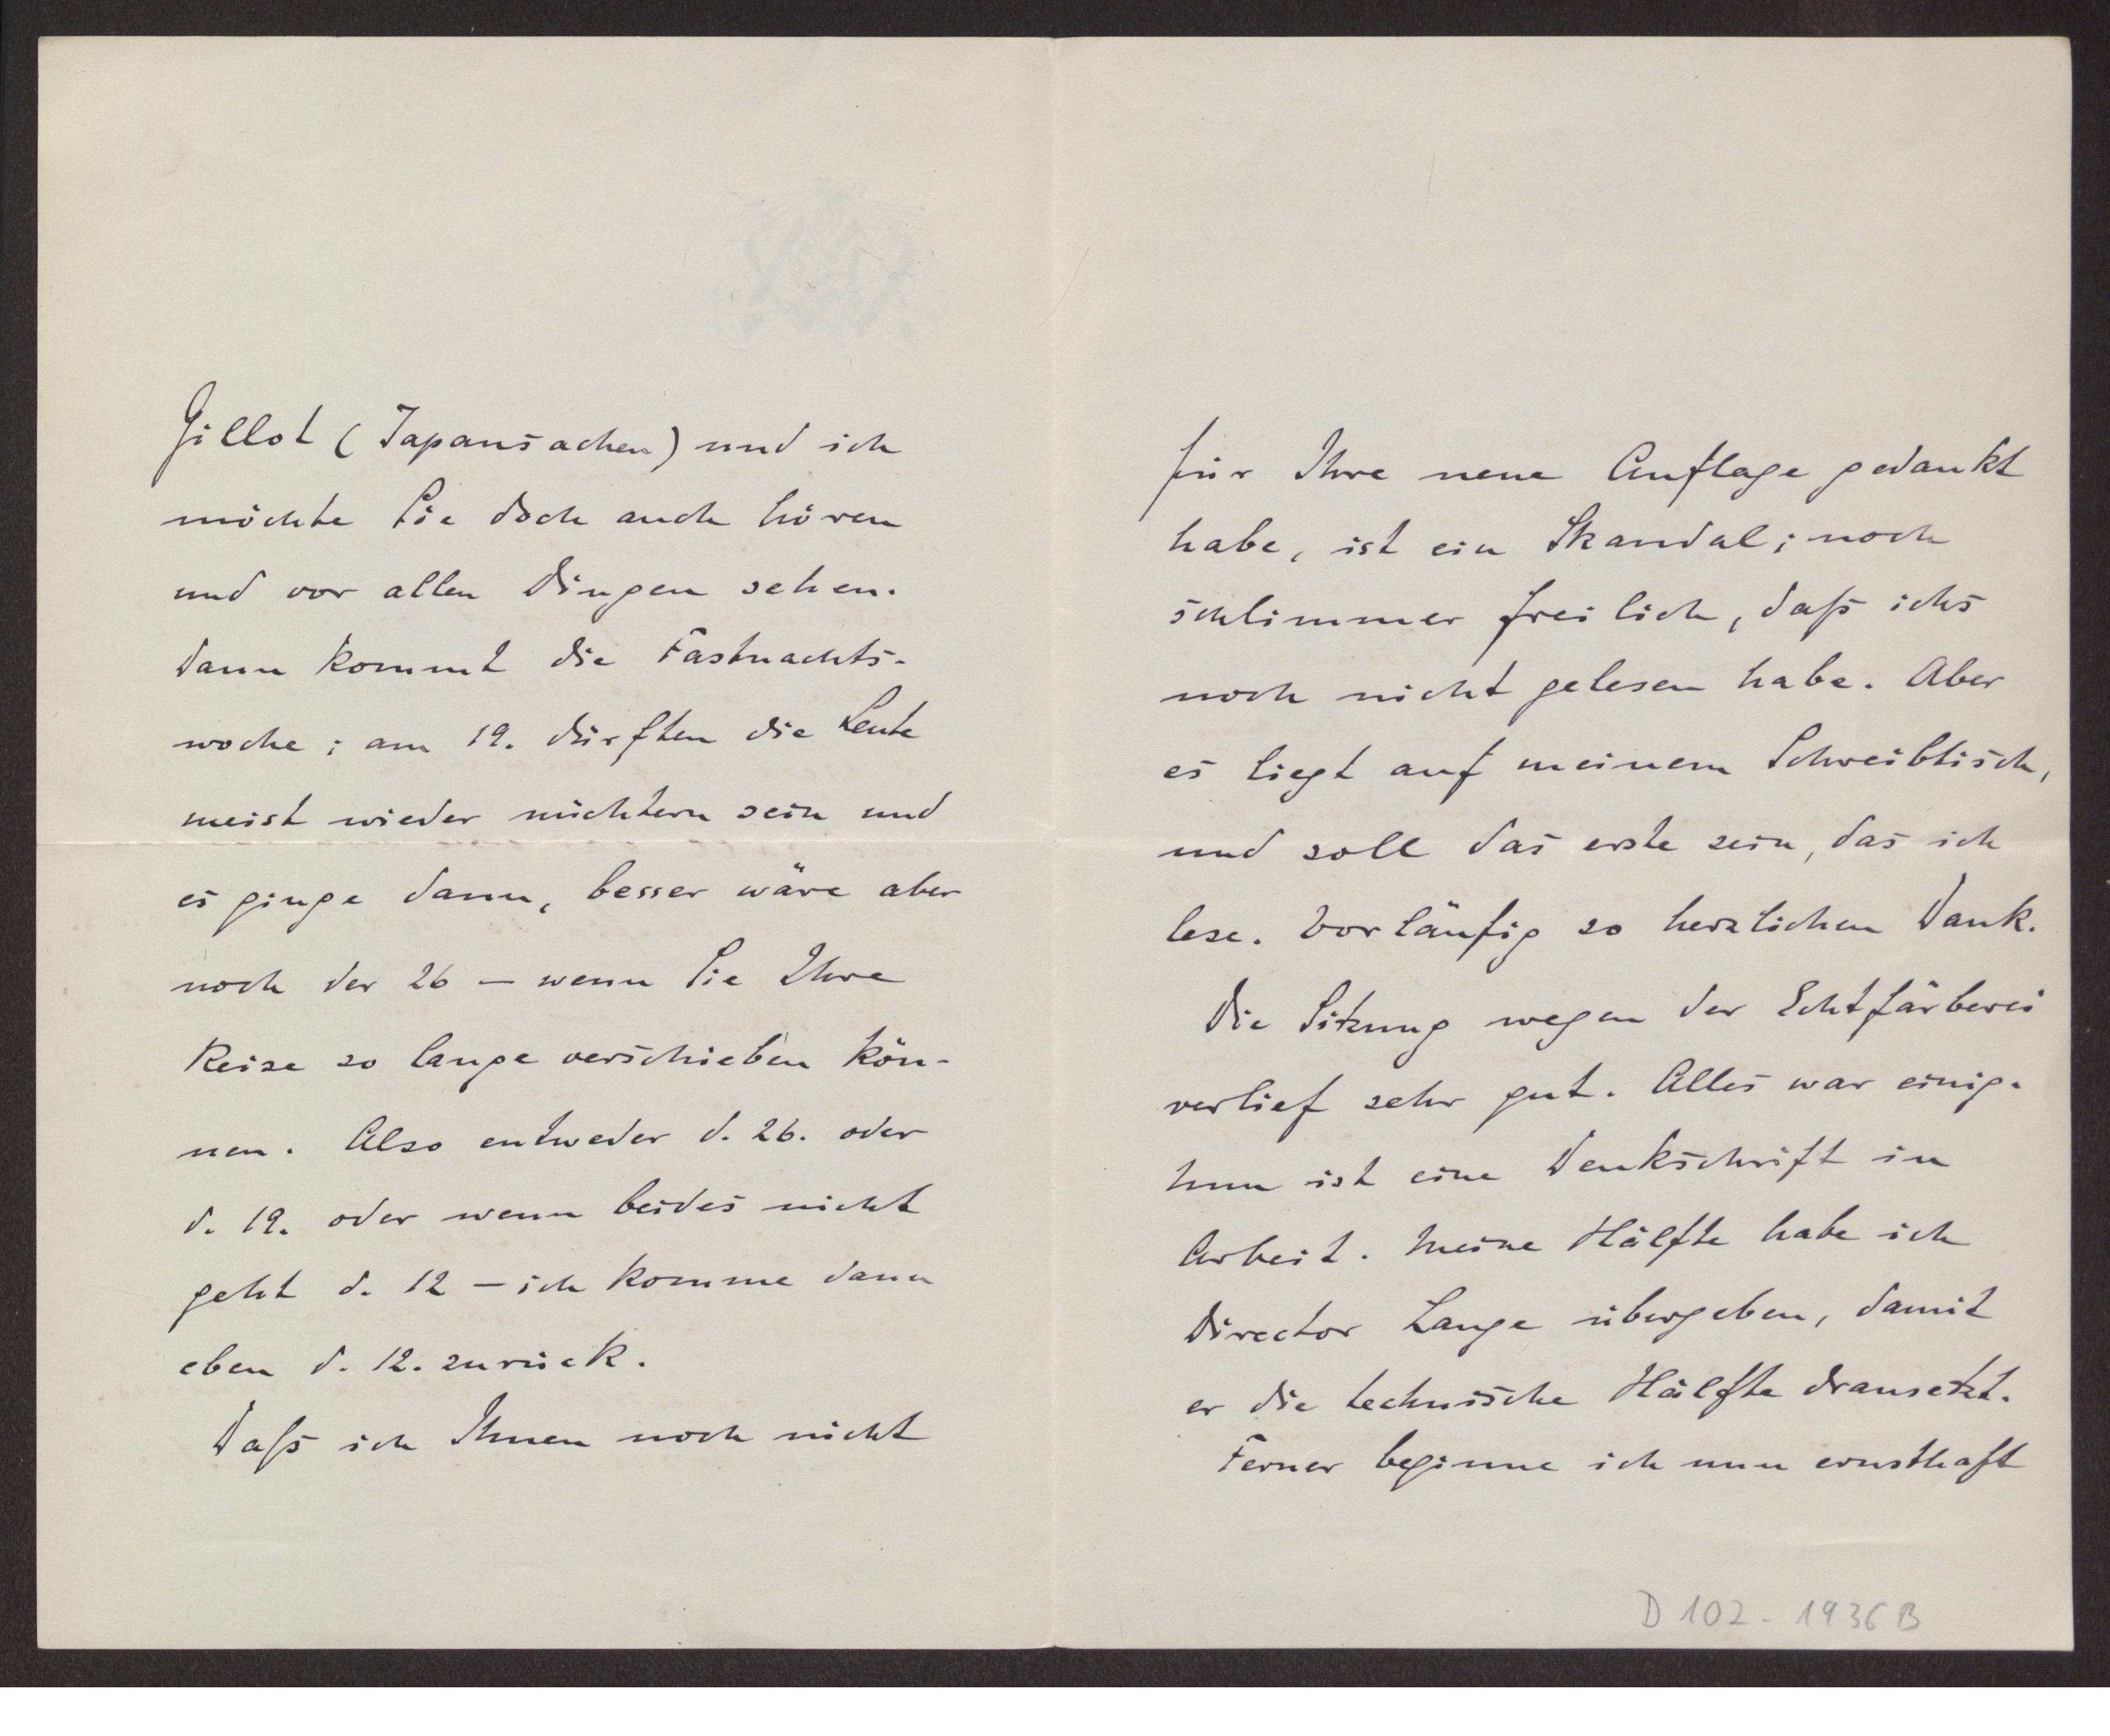 Gillot (Japansachen) und ich
möchte Sie doch auch hören
und vor allen Dingen sehen.
Dann kommt die Fastnachts-
woche; am 19. dürften die Leute
meist wieder nüchtern sein und
es ginge dann, besser wäre aber
noch der 26 – wenn Sie Ihre
Reise so lange verschieben kön-
nen. Also entweder d. 26. oder
d. 19. oder wenn beides nicht
geht d. 12 – ich komme dann
eben d. 12. zurück.
Daß ich Ihnen noch nicht
für Ihre neue Auflage gedankt
habe, ist ein Skandal; noch
schlimmer freilich, daß ichs
noch nicht gelesen habe. Aber
es liegt auf meinem Schreibtisch,
und soll das erste sein, das ich
lese. Vorläufig so herzlichen Dank.
Die Sitzung wegen der Echtfärberei
verlief sehr gut. Alles war einig.
Nun ist eine Denkschrift in
Arbeit. Meine Hälfte habe ich
Director Lange übergeben, damit
er die technische Hälfte dransetzt.
Ferner beginne ich nun ernsthaft
D 102 - 1936 B